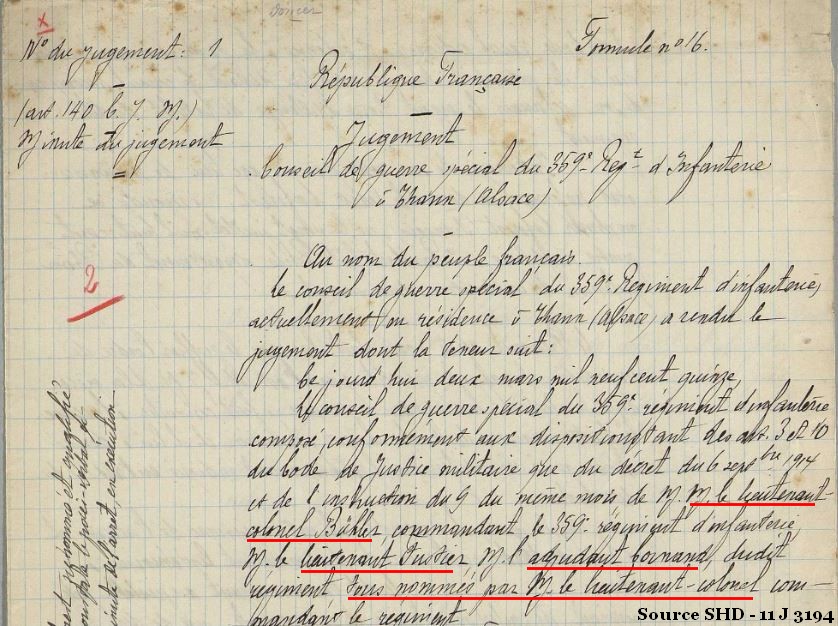 N° du jugement: 1
Formule n° 16.
République Française
(art. 140 C. J. M.)
Minute du jugement
Jugement
Conseil de guerre spécial du 359e Regt d'Infanterie
à Thann (Alsace)
2
Au nom du peuple français.
Le conseil de guerre spécial du 359e Régiment d'infanterie,
actuellement en résidence à Thann (Alsace) a rendu le
jugement dont la teneur suit:
Ce jourd'hui deux mars mil neuf cent quinze,
Le conseil de guerre spécial du 359e régiment d'infanterie
composé, conformément aux dispositions tant des art. 3 et 10
du Code de Justice militaire que du décret du 6 septbre 1914
et de l'instruction du 9 du même mois de M. M. le lieutenant-
colonel Bühler commandant le 359e régiment d'infanterie,
M. le lieutenant Tustier M. l'adjudant Cornand, dudit
régiment tous nommés par M. le lieutenant-colonel com-
mandant le régiment
Source SHD - 11 J 3194